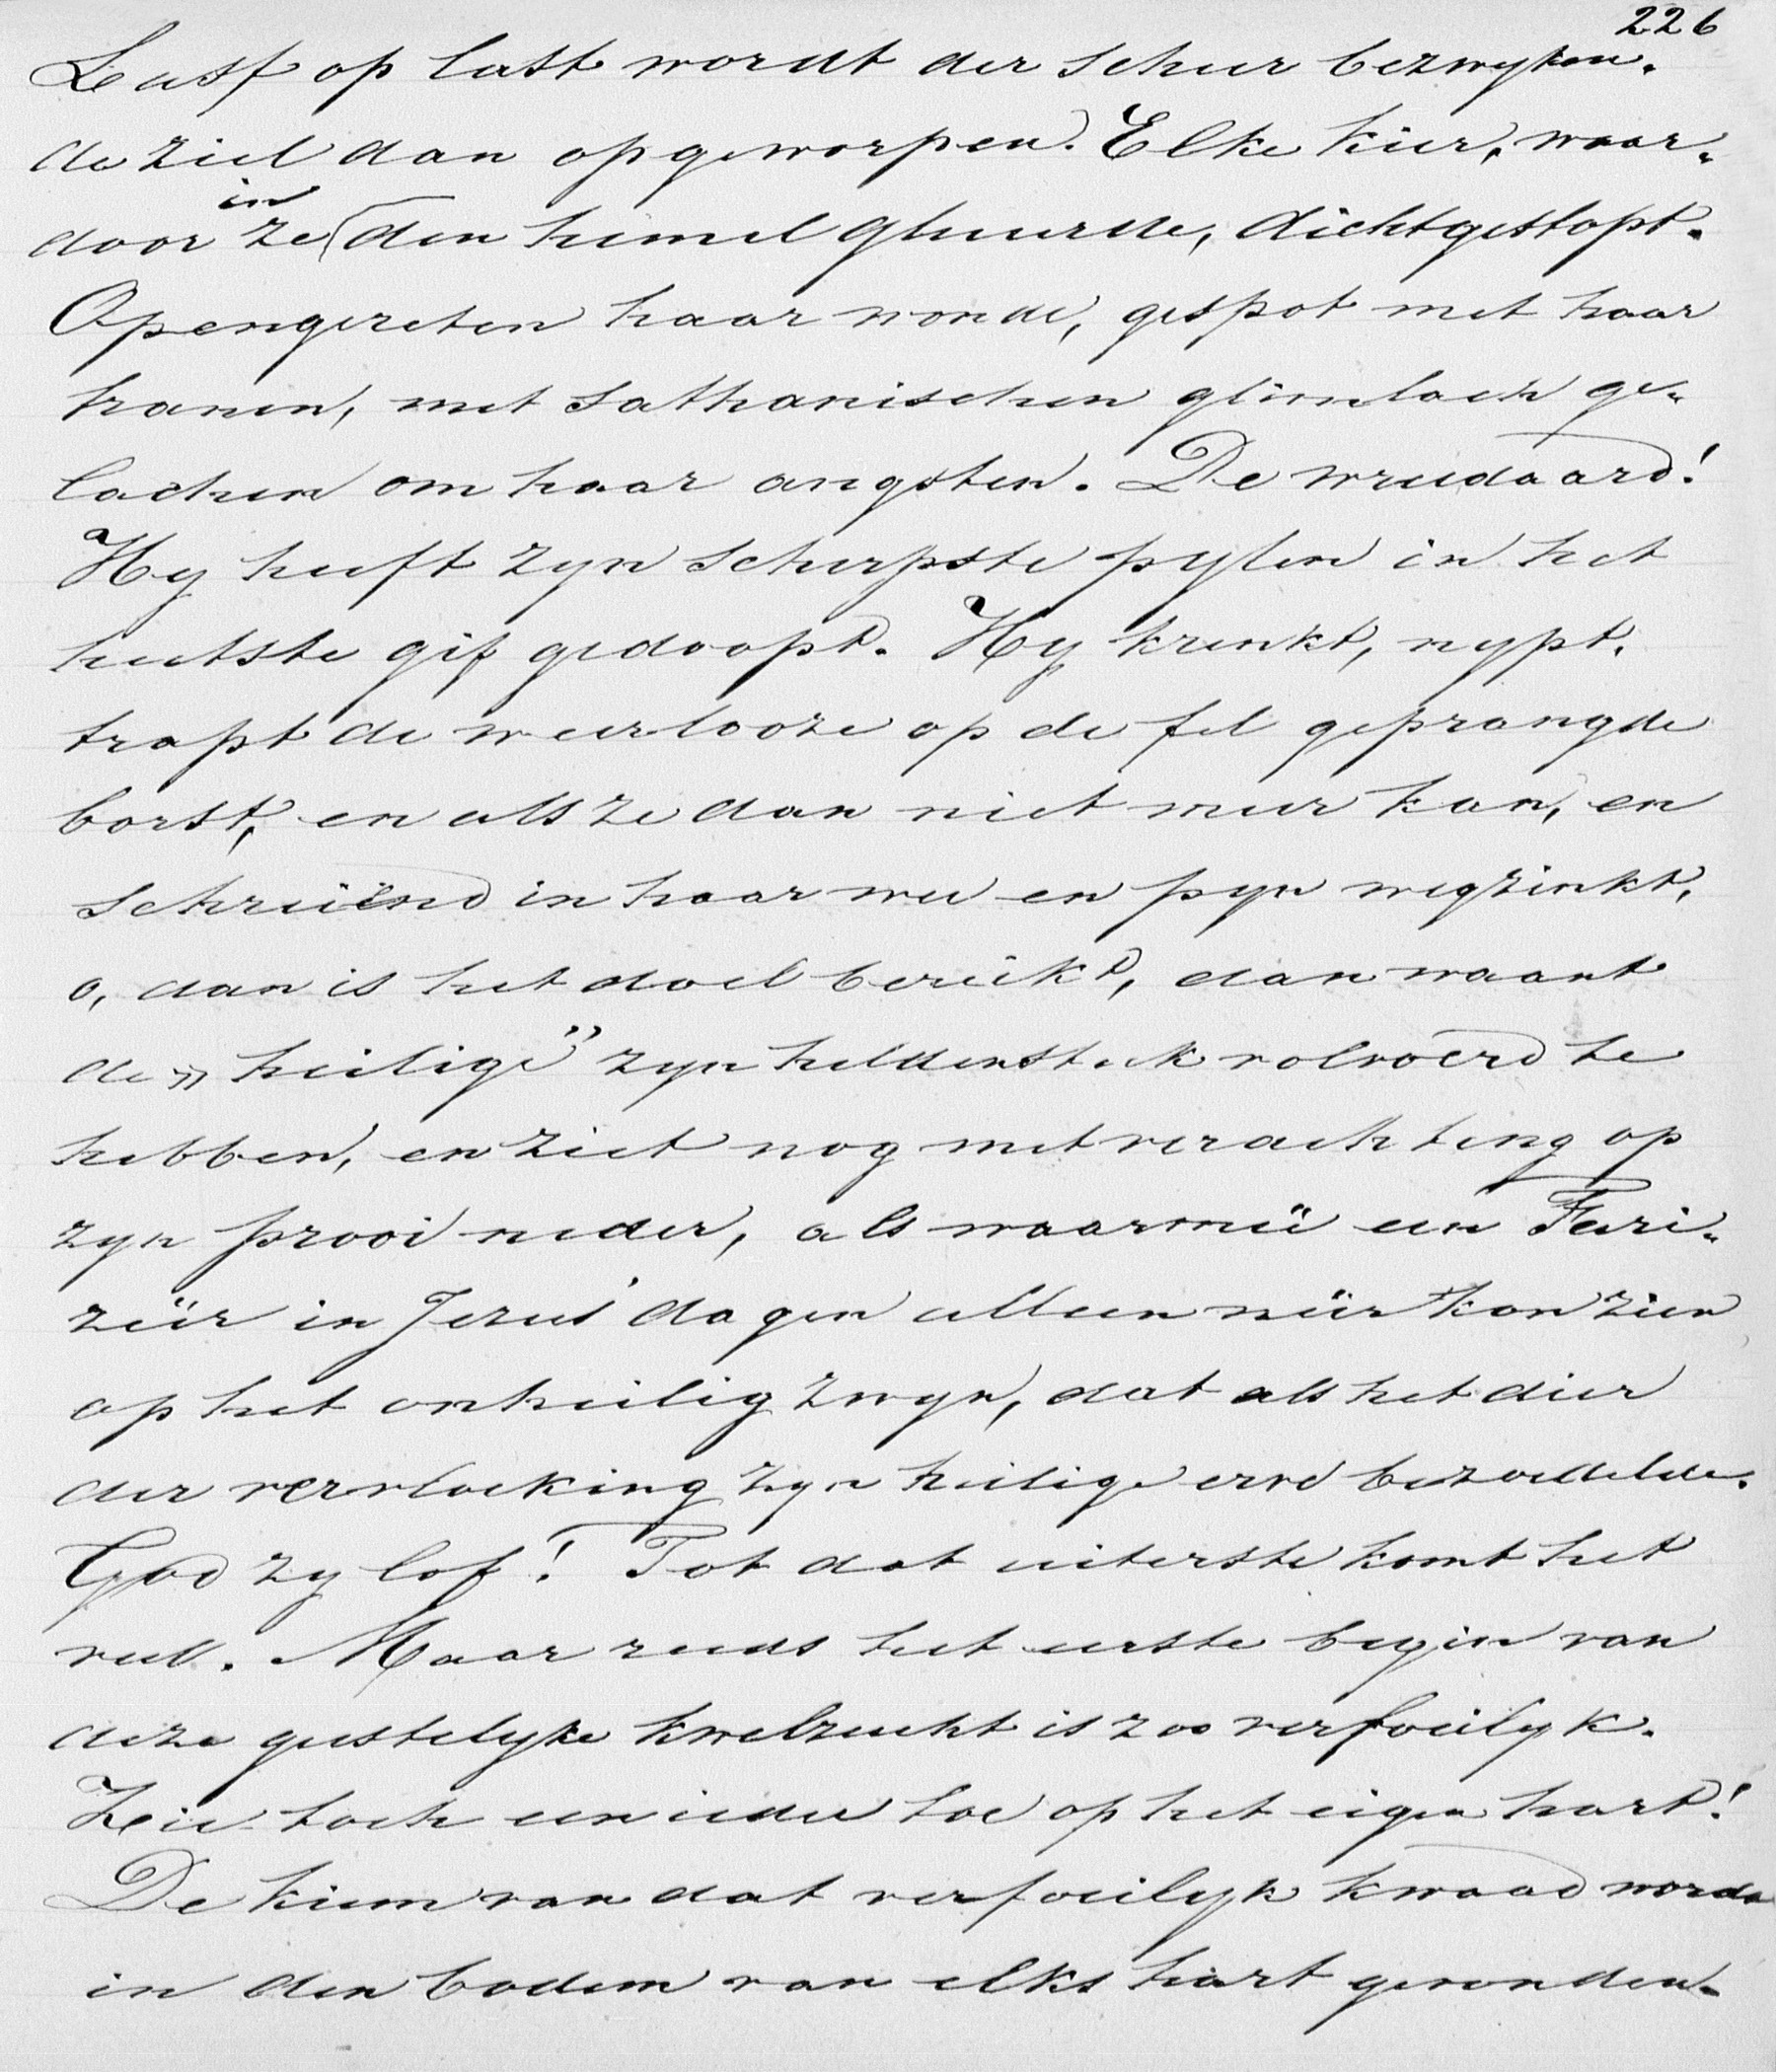 226
Last op last wordt der scheur bezwyken-
de ziel dan opgeworpen. Elke kier, waar-
door ze in den hemel gluurde, dichtgestopt.
Opengereten haar wonde, gespot met haar
tranen, met sathanischen glimlach ge-
lachen om haar angsten. De wreedaard!
Hy heeft zyn scherpste pylen in het
heetste gif gedoopt. Hy krenkt, nypt,
trapt de weerlooze op de fel geprangde
borst, en als ze dan niet meer kan, en
schreiënd in haar wee en pyn wegzinkt,
o, dan is het doel bereikt, dan waant
de „heilige” zyn heldenstuk volvoerd te
hebben, en ziet nog met verachting op
zyn prooi neder, als waarmeê een Fari-
zeër in Jezus' dagen alleen neêr kon zien
op het onheilig zwyn, dat als het dier
der vervloeking zyn heilige erve bezoedelde.
God zy lof! Tot dat uiterste komt het
veel. Maar reeds het eerste begin van
deze geestelyke kwelzucht is zoo verfoeilyk.
Zeie toch een ieder toe op het eigen hart!
De kiem van dat verfoeilyk kwaad worde
in den bodem van elks hart gevonden.